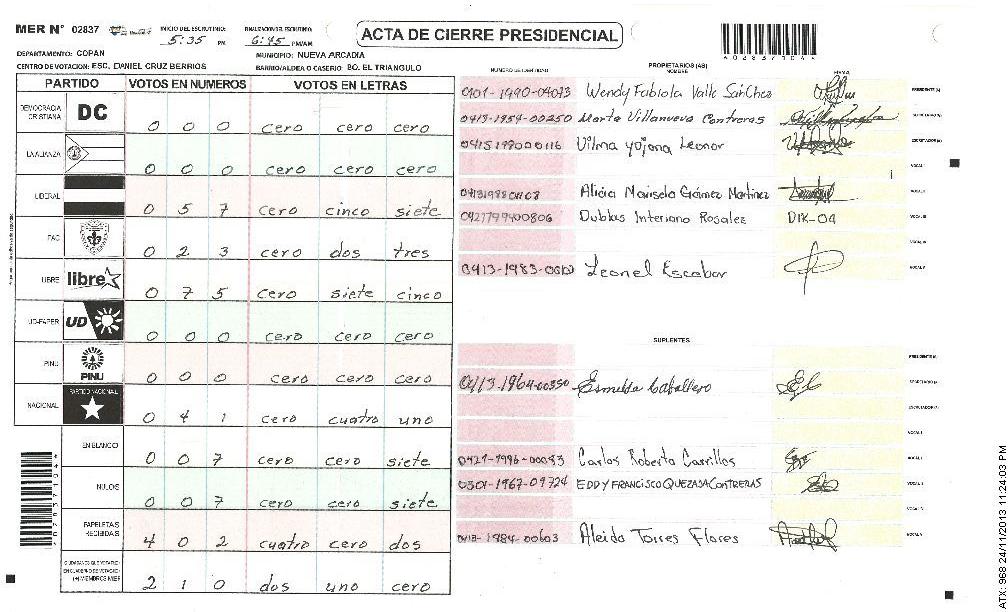 MER N° 02837
INICIO DEL ESCRUTINIO: 5:35 PM
FINALIZACION DEL ESCRUTINIO: 6:45 PM/AM
ACTA DE CIERRE PRESIDENCIAL
DEPARTAMENTO: COPAN
MUNICIPIO: NUEVA ARCADIA
CENTRO DE VOTACION: ESC. DANIEL CRUZ BERRIOS
BARRIO/ALDEA O CASERIO: BO. EL TRIANGULO
PARTIDO VOTOS EN NUMEROS VOTOS EN LETRAS
DEMOCRACIA CRISTIANA DC 0 0 0 cero cero cero
LA ALIANZA 0 0 0 cero cero cero
LIBERAL 0 5 7 cero cinco siete
PAC 0 2 3 cero dos tres
LIBRE libre 0 7 5 cero siete cinco
UD-FAPER UD 0 0 0 cero cero cero
PINU PINU 0 0 0 cero cero cero
NACIONAL PARTIDO NACIONAL 0 4 1 cero cuatro uno
EN BLANCO 0 0 7 cero cero siete
NULOS 0 0 7 cero cero siete
PAPELETAS RECIBIDAS 4 0 2 cuatro cero dos
CIUDADANOS QUE VOTARON EN CUADERNO DE VOTACION (+) MIEMBROS MER 2 1 0 dos uno cero
NUMERO DE IDENTIDAD
PROPIETARIOS (AS)
NOMBRE
FIRMA
0401-1990-04073 Wendy Fabiola Valle Sanchez PRESIDENTE (A)
0413-1954-00250 Marta Villanueva Contreras SECRETARIO (A)
0415199000116 Vilma yojana Leonor ESCRUTADOR (A)
VOCAL I
Alicia Marisela Gámez Martinez VOCAL II
0421799400806 Dubblas Interiano Rosales DIR-04 VOCAL III
VOCAL IV
Leonel Escobar VOCAL V
SUPLENTES
PRESIDENTE (A)
0413-1964-00350 Esmelda Caballero SECRETARIO (A)
ESCRUTADOR (A)
VOCAL I
0421-1996-00083 Carlos Roberto Carrillos VOCAL II
0501-1967-09724 EDDY FRANCISCO QUEZADA CONTRERAS VOCAL III
VOCAL IV
0413-1984-00603 Aleida Torres Flores VOCAL V
ATX: 968 24/11/2013 11:24:03 PM